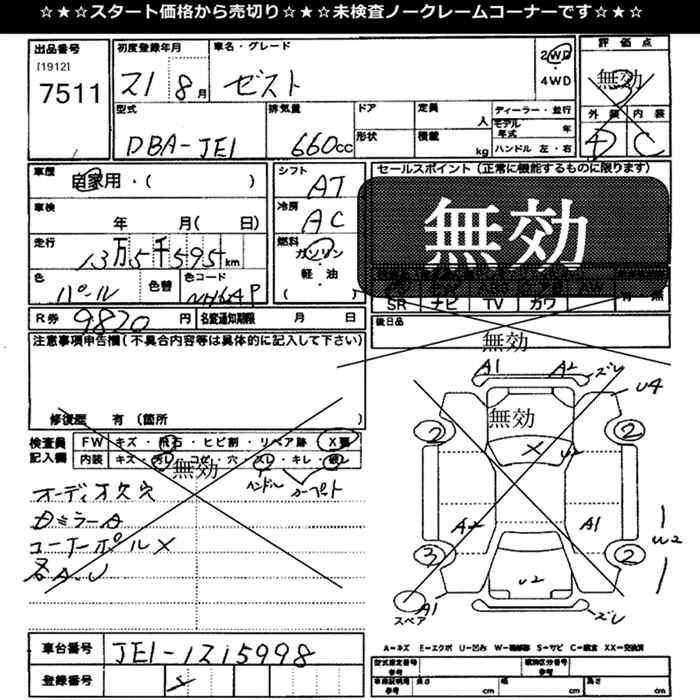 ☆★☆★スタート価格から売切り☆★☆★未検査ノークレームコーナーです☆★☆
出品番号
[1912]
7511
初度登録年月
21 8月
車名・グレード
ゼスト
2WD
4WD
評価点
無効
外装 内装
D C
型式
DBA-JE1
排気量
660cc
ドア
形状
定員
人
積載
kg
ディーラー・並行
モデル年式 年
ハンドル 左・右
車歴
自家用・( )
車検
年 月( 日)
走行
13万5千595km
色
パール
色替
色コード
NH624P
シフト
AT
冷房
AC
燃料
ガソリン
軽・油
( )
セールスポイント(正常に機能するものに限ります)
無効
SR ナビ TV カワ
有 無
R券
9820円
名変通知期限 月 日
後日品
無効
注意事項申告欄(不具合内容等は具体的に記入して下さい)
修復歴 有(箇所 )
検査員
記入欄
FW キズ・飛石・ヒビ割・リペア跡 X要
内装 キズ・汚レ・コゲ・穴・スレ・キレ・破レ
無効
ハンドル カーペット
オーディオ欠穴
Dミラー A
コーナーポール X
各A.U
A1 A2 ズレ
U4
無効
2 2
X U2
A2 A1
W2
3 2
U2
A1 ズレ
スペア
車台番号
JE1-1215998
登録番号
A=キズ E=エクボ U=凹み W=補修跡 S=サビ C=腐食 XX=交換済
型式指定番号
参考
類別区分番号
参考
車庫証明用
参考
長さ cm 幅 cm 高さ cm